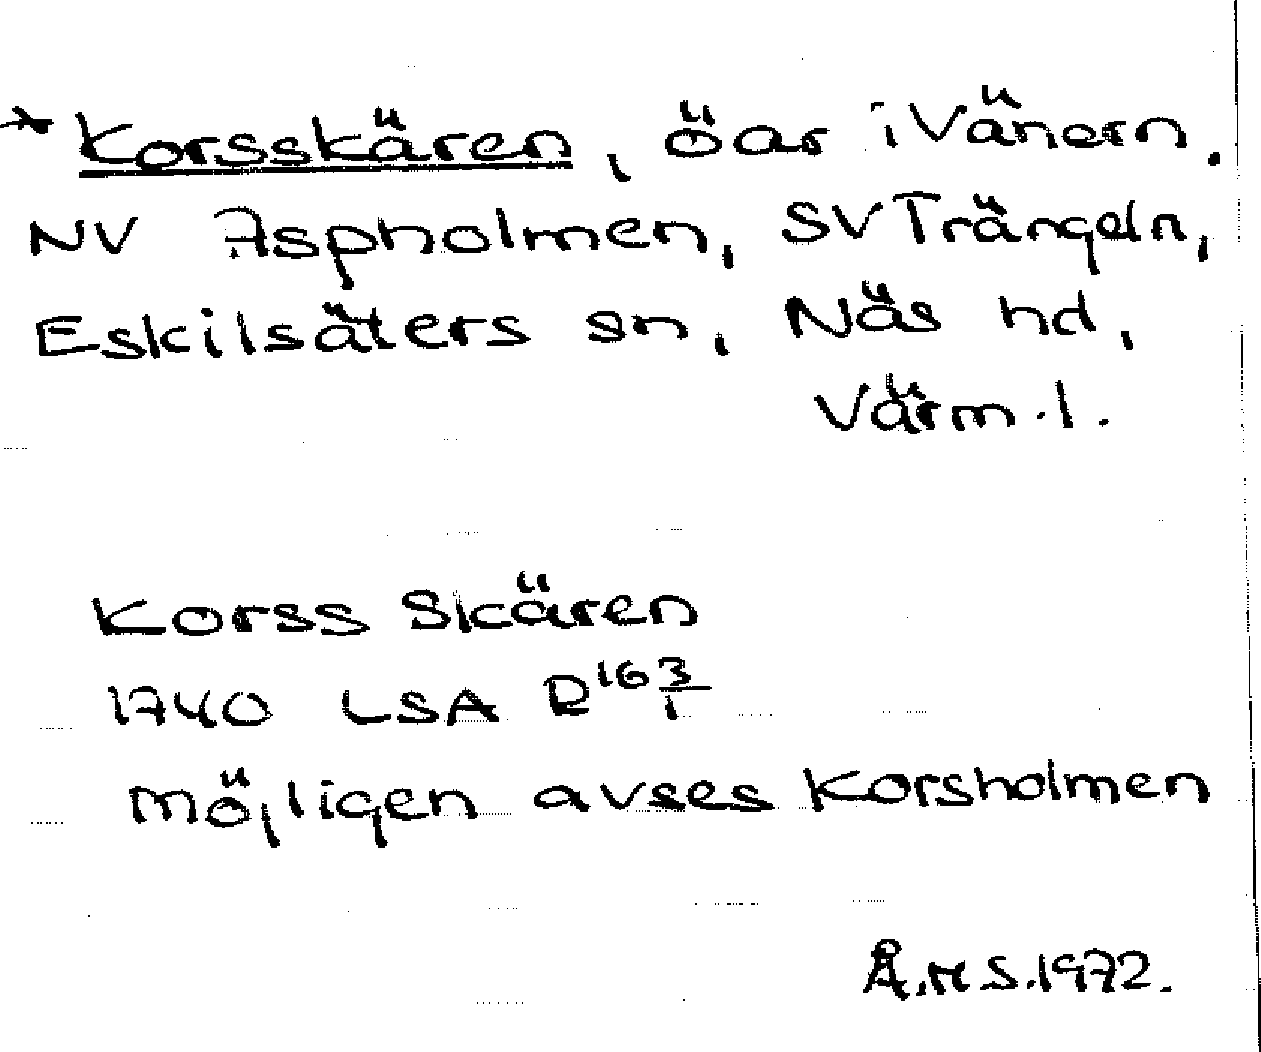 *Korsskären, öar i Vänern.
NV Aspholmen, SV Trängeln,
Eskilsäters sn, Näs hd,
Värm.l.
Korss Skären
1740 LSA R16 3/1
möjligen avses Korsholmen
Å.H.S.1972.